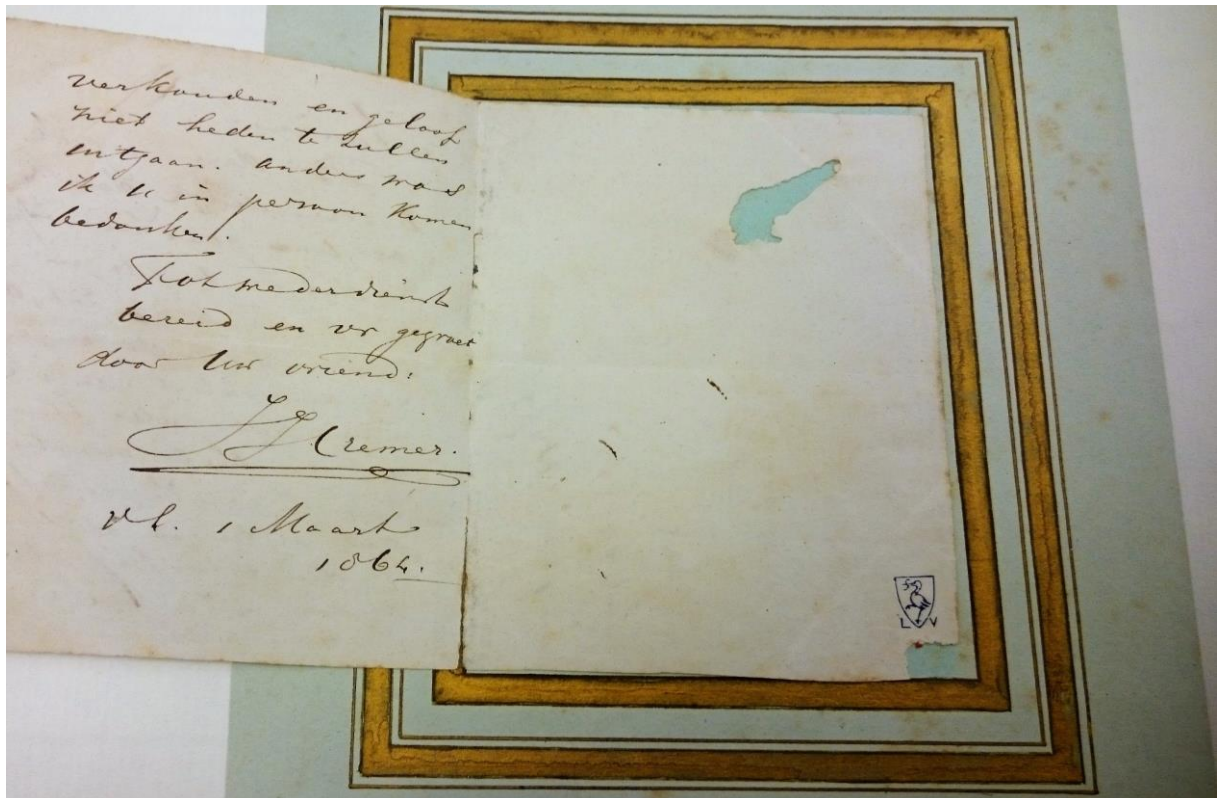 verkouden en geloof
niet heden te zullen
uitgaan. anders was
ik U in persoon komen
bedanken.
Tot wederdienst
bereid en vr gegroet
door Uw vriend:
JJ Cremer.
1 Maart
1864.
L V